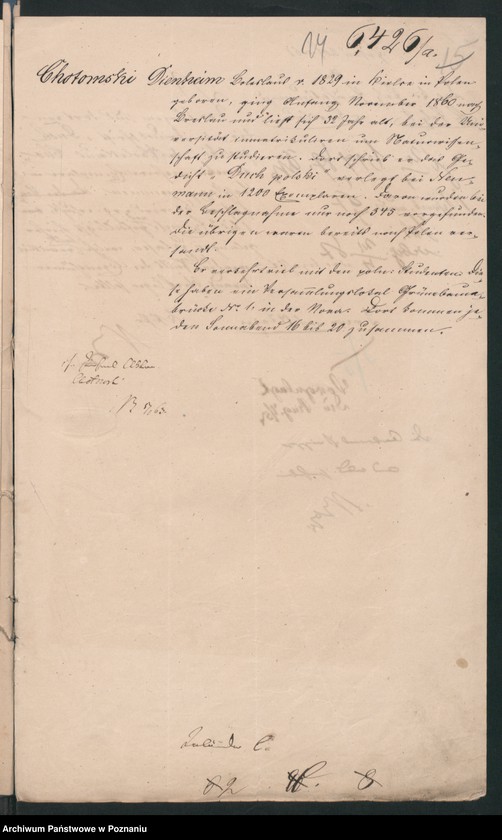 14 6,426/a. 15
Chotomski Dienheim Boleslaus v. 1829 in Kielce in Polen
geboren, ging Anfang November 1860 nach
Breslau und ließ sich 32 Jahr alt, bei der Uni-
versität immatrikuliren um Naturwissen-
schaft zu studieren. Dort schrieb er das Ge-
dicht „Duch polski" verlegt bei
mann in 1200 Exemplaren. Davon wurden bei
der Beschlagnahme nur noch 545 vorgefunden.
Die übrigen waren bereits nach Polen ver-
sandt.
Er mit den poln. Studenten. Die-
se haben ein Versammlungslokal Grünebaum-
brücke Nr. 1. in der Dort kommen je-
den Sonnabend 16 bis 20 zusammen.
Chotomski
82 8
Archiwum Państwowe w Poznaniu